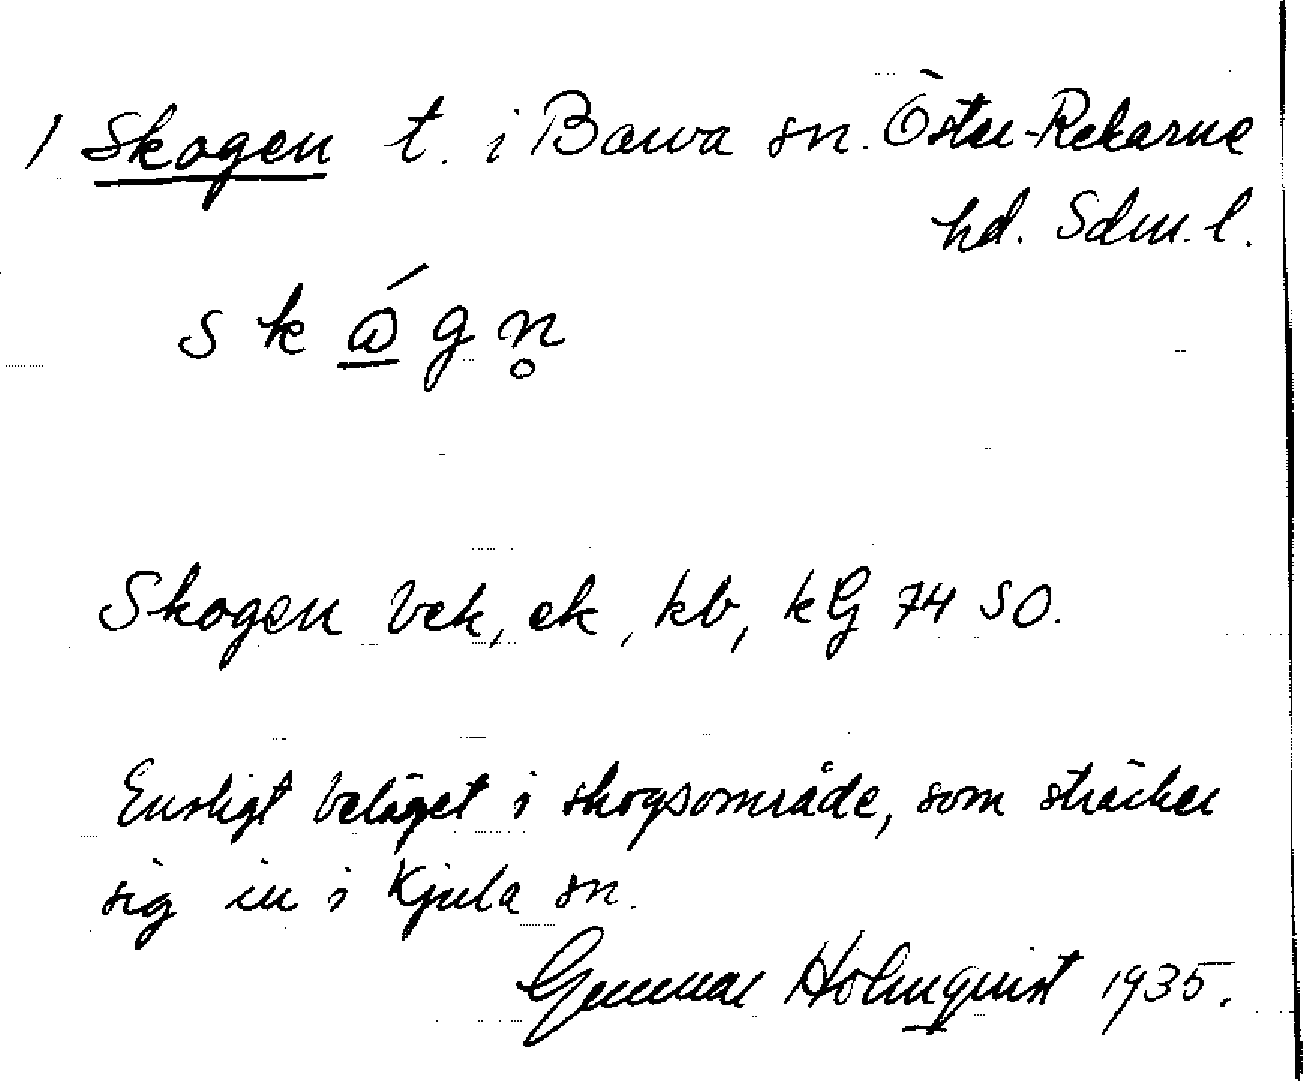 1 Skogen t. i Barva sn. Öster-Rekarne
hd. Sdm. l.
s k ó g n̥
Skogen bek, ek, kb, kG 74 SO.
Ensligt beläget i skogsområde, som sträcker
sig in i Kjula sn.
Gunnar Holmquist 1935.